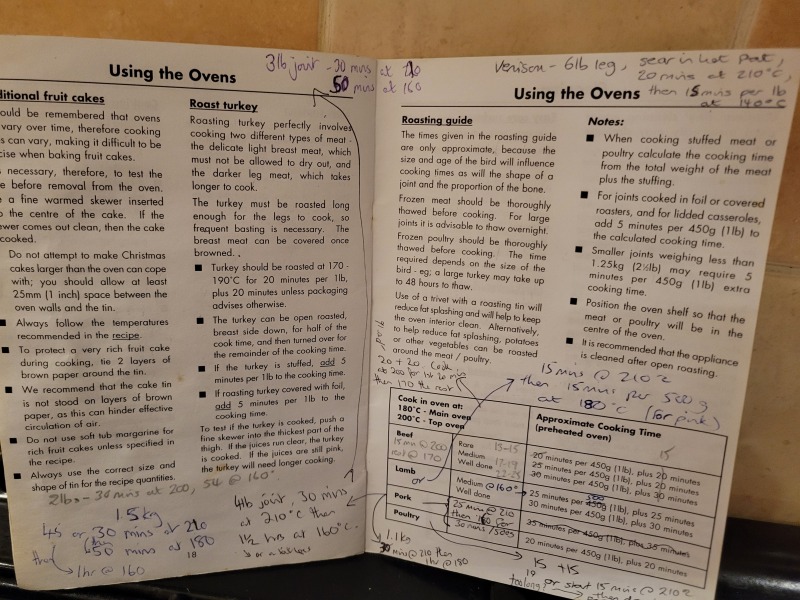 3lb joint - 30 mins at 210
50 mins at 160
Using the Ovens
ditional fruit cakes
ould be remembered that ovens
vary over time, therefore cooking
s can vary, making it difficult to be
cise when baking fruit cakes.
s necessary, therefore, to test the
e before removal from the oven.
e a fine warmed skewer inserted
o the centre of the cake. If the
ewer comes out clean, then the cake
cooked.
Do not attempt to make Christmas
cakes larger than the oven can cope
with; you should allow at least
25mm (1 inch) space between the
oven walls and the tin.
Always follow the temperatures
recommended in the recipe.
■ To protect a very rich fruit cake
during cooking, tie 2 layers of
brown paper around the tin.
■ We recommend that the cake tin
is not stood on layers of brown
paper, as this can hinder effective
circulation of air.
■ Do not use soft tub margarine for
rich fruit cakes unless specified in
the recipe.
■ Always use the correct size and
shape of tin for the recipe quantities.
Roast turkey
Roasting turkey perfectly involves
cooking two different types of meat -
the delicate light breast meat, which
must not be allowed to dry out, and
the darker leg meat, which takes
longer to cook.
The turkey must be roasted long
enough for the legs to cook, so
frequent basting is necessary. The
breast meat can be covered once
browned.
■ Turkey should be roasted at 170 -
190°C for 20 minutes per 1lb,
plus 20 minutes unless packaging
advises otherwise.
■ The turkey can be open roasted,
breast side down, for half of the
cook time, and then turned over for
the remainder of the cooking time.
■ If the turkey is stuffed, add 5
minutes per 1lb to the cooking time.
■ If roasting turkey covered with foil,
add 5 minutes per 1lb to the
cooking time.
To test if the turkey is cooked, push a
fine skewer into the thickest part of the
thigh. If the juices run clear, the turkey
is cooked. If the juices are still pink,
the turkey will need longer cooking.
2lbs - 30 mins at 200, 54 @ 160°
1.5kg
45 or 30 mins at 210
then 50 mins at 180
1hr @ 160
4lb joint, 30 mins
at 210°C then
1½ hrs at 160°C.
18
Venison - 6lb leg, sear in hot pat,
20 mins at 210°C,
then 15 mins per lb
at 140°C
Using the Ovens
Roasting guide
The times given in the roasting guide
are only approximate, because the
size and age of the bird will influence
cooking times as will the shape of a
joint and the proportion of the bone.
Frozen meat should be thoroughly
thawed before cooking. For large
joints it is advisable to thaw overnight.
Frozen poultry should be thoroughly
thawed before cooking. The time
required depends on the size of the
bird - eg; a large turkey may take up
to 48 hours to thaw.
Use of a trivet with a roasting tin will
reduce fat splashing and will help to keep
the oven interior clean. Alternatively,
to help reduce fat splashing, potatoes
or other vegetables can be roasted
around the meat / poultry.
20 + 20. Cook in
at 200 for 1st 20 min
then 170 the rest
Notes:
■ When cooking stuffed meat or
poultry calculate the cooking time
from the total weight of the meat
plus the stuffing.
■ For joints cooked in foil or covered
roasters, and for lidded casseroles,
add 5 minutes per 450g (1lb) to
the calculated cooking time.
■ Smaller joints weighing less than
1.25kg (2½lb) may require 5
minutes per 450g (1lb) extra
cooking time.
■ Position the oven shelf so that the
meat or poultry will be in the
centre of the oven.
■ It is recommended that the appliance
is cleaned after open roasting.
15 mins @ 210°C
then 15 mins per 500g
at 180°C (for pink)
Cook in oven at:
180°C - Main oven
200°C - Top oven
Approximate Cooking Time
(preheated oven)
Beef
15 min @ 200
rest @ 170
Rare 15-15
Medium 17-19
Well done 22-25
15
20 minutes per 450g (1lb), plus 20 minutes
25 minutes per 450g (1lb), plus 20 minutes
30 minutes per 450g (1lb), plus 30 minutes
Lamb
or
Medium @ 160°
Well done
500
25 minutes per 450g (1lb), plus 25 minutes
30 minutes per 450g (1lb), plus 30 minutes
Pork
25 min @ 210
then 160 for
30 mins/500g
35 minutes per 450g (1lb), plus 35 minutes
Poultry
20 minutes per 450g (1lb), plus 20 minutes
1.1kg
30 mins @ 210 then
1hr @ 180
15 + 15
19
too long? or start 15 mins @ 210°C